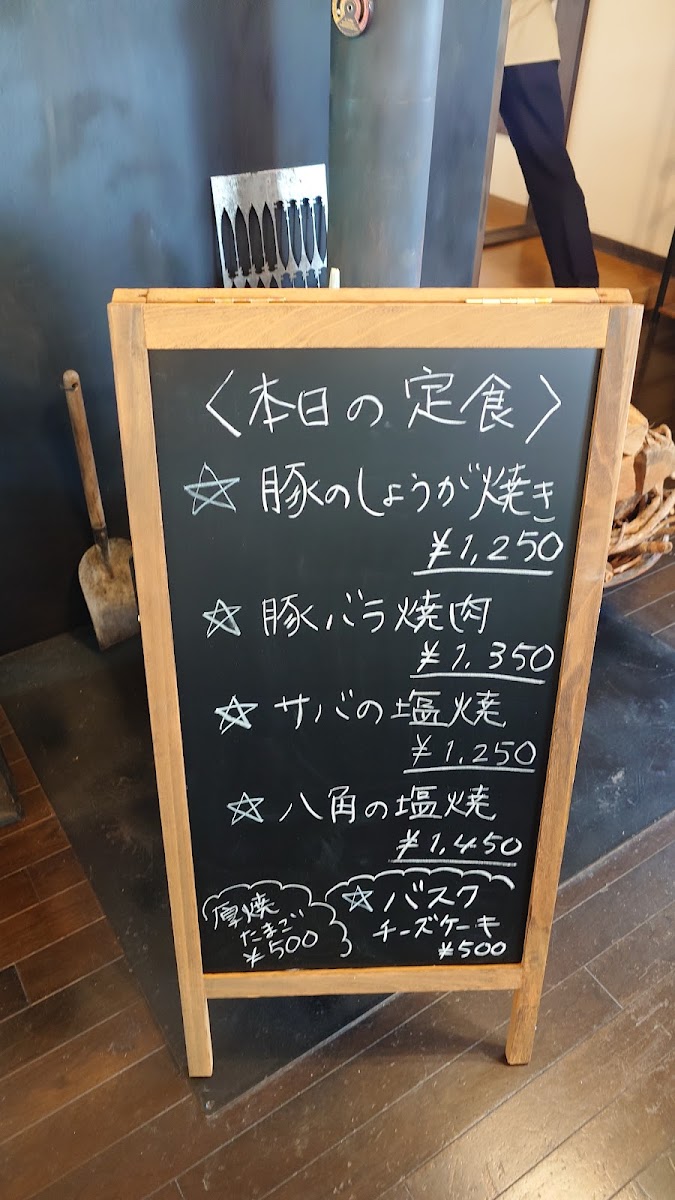 〈本日の定食〉
☆ 豚のしょうが焼き
¥1,250
☆ 豚バラ焼肉
¥1,350
☆ サバの塩焼
¥1,250
☆ 八角の塩焼
¥1,450
厚焼
たまご
¥500
☆ バスク
チーズケーキ
¥500